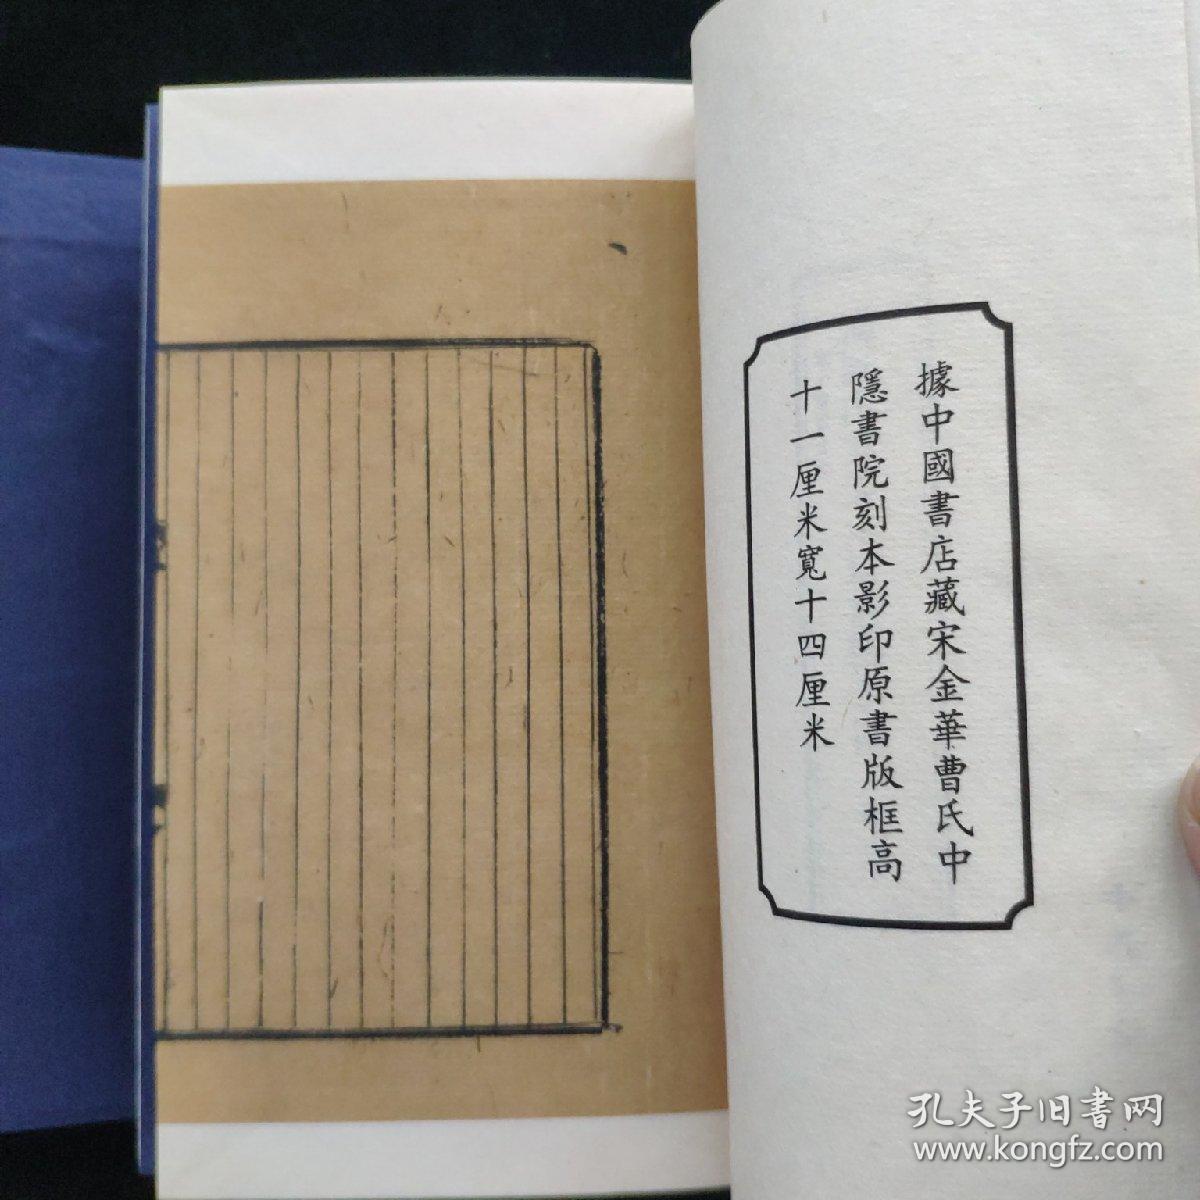 據中國書店藏宋金華曹氏中
隱書院刻本影印原書版框高
十一厘米寬十四厘米
孔夫子旧書网
www.kongfz.com